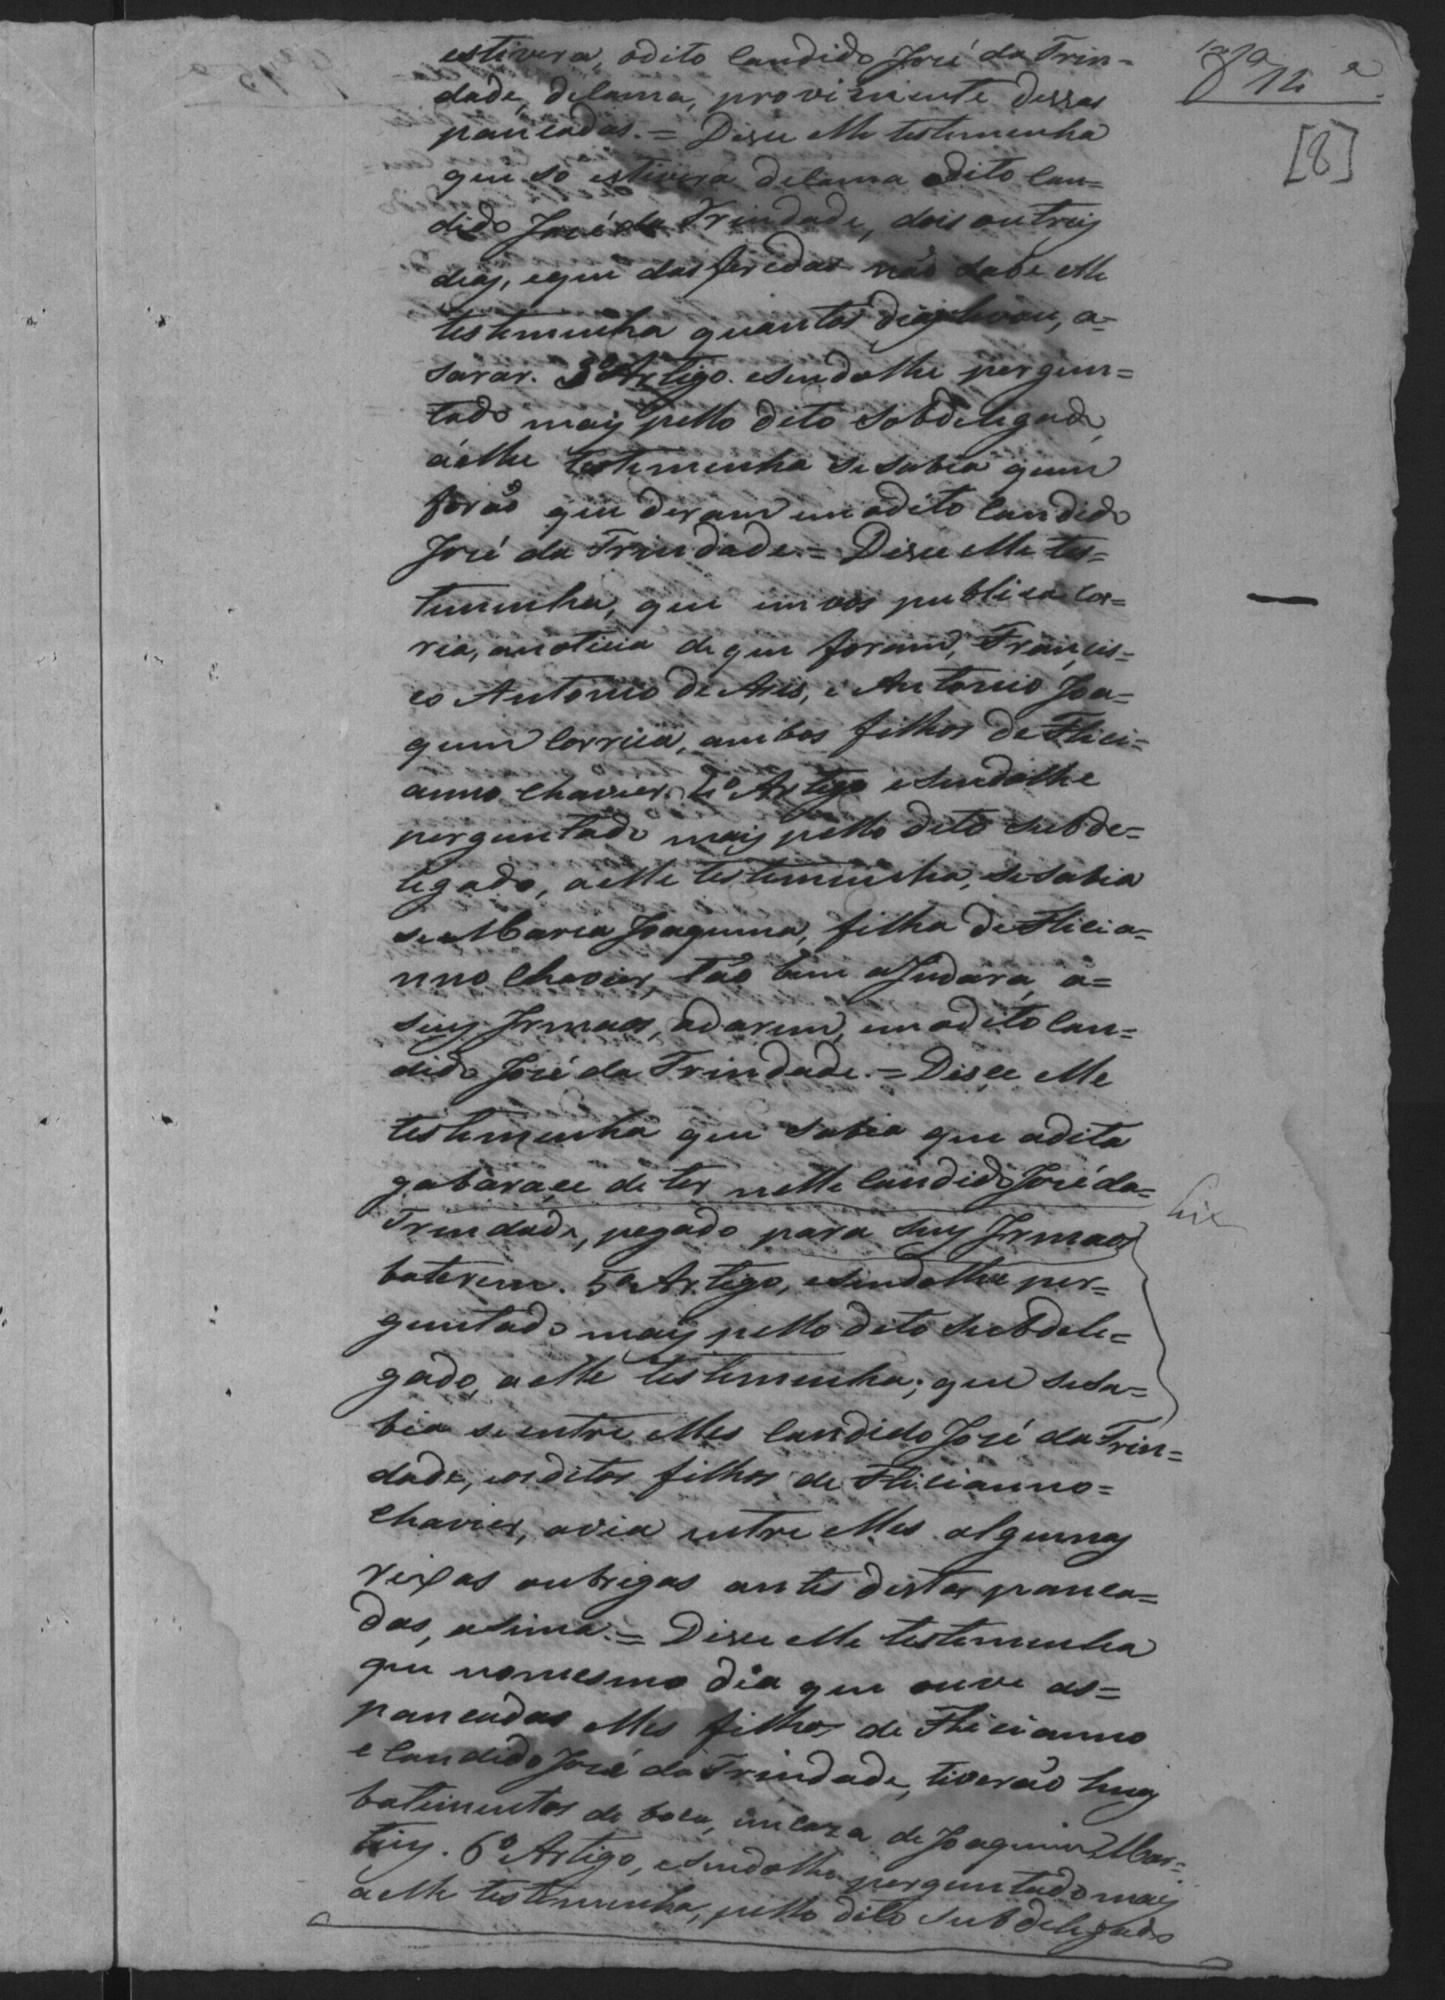 estivera, odito Candido José da Trin-
dade, delama, provimente dessas
pancadas. = Dise elle testimunha
que só estivera delama odito Can=
dido José da Trindade, dois outreis
dias, eque das feredas não sabe elle
testimunha quantos dias levou, a=
sarar. 3º Artigo. esendolhe pergun=
tado mais pello dito Sobdelegado,
áelle testimunha sesabia quem
forão que deram emodito Candido
José da Trindade. = Dise elle tes=
timunha, que emvos publica cor=
ria, anoticia de que foram, Francis=
co Antonio de Asis, e Antonio Joa=
quim Correia, ambos filhos de Flici=
anno Chavier. 4º Artigo esendolhe
perguntado mais pello dito Subde=
legado, aelle testimunha, sesabia
se Maria Joaquina, filha de Flicia=
nno Chavier, tão bem aJudara, a=
suis Irmaos, adarem, emodito Can=
dido José da Trindade. = Dise elle
testimunha que sabia que adita
gabarace de ter nelle Candido José da=
Trindade, pegado para suis Irmaos
baterem. 5º Artigo, esendolhe per=
guntado mais pello dito Subdele=
gado, aelle testimunha; que sesa=
bia seentre elles Candido José da Trin=
dade, eosditos filhos de Flicianno=
Chavier, avia entre elles algumas
rixas oubrigas antes destas panca=
das, asima. = Dise elle testimunha
que nomesmo dia que ouve as=
pancadas elles filhos de Flicianno
e Candido José da Trindade, tiverão huns
batimentos de boca, emcaza de Joaquim Mar=
tins. 6º Artigo, esendolhe perguntado mais
aelle testimunha, pello dito Subdelegado
12
[8]